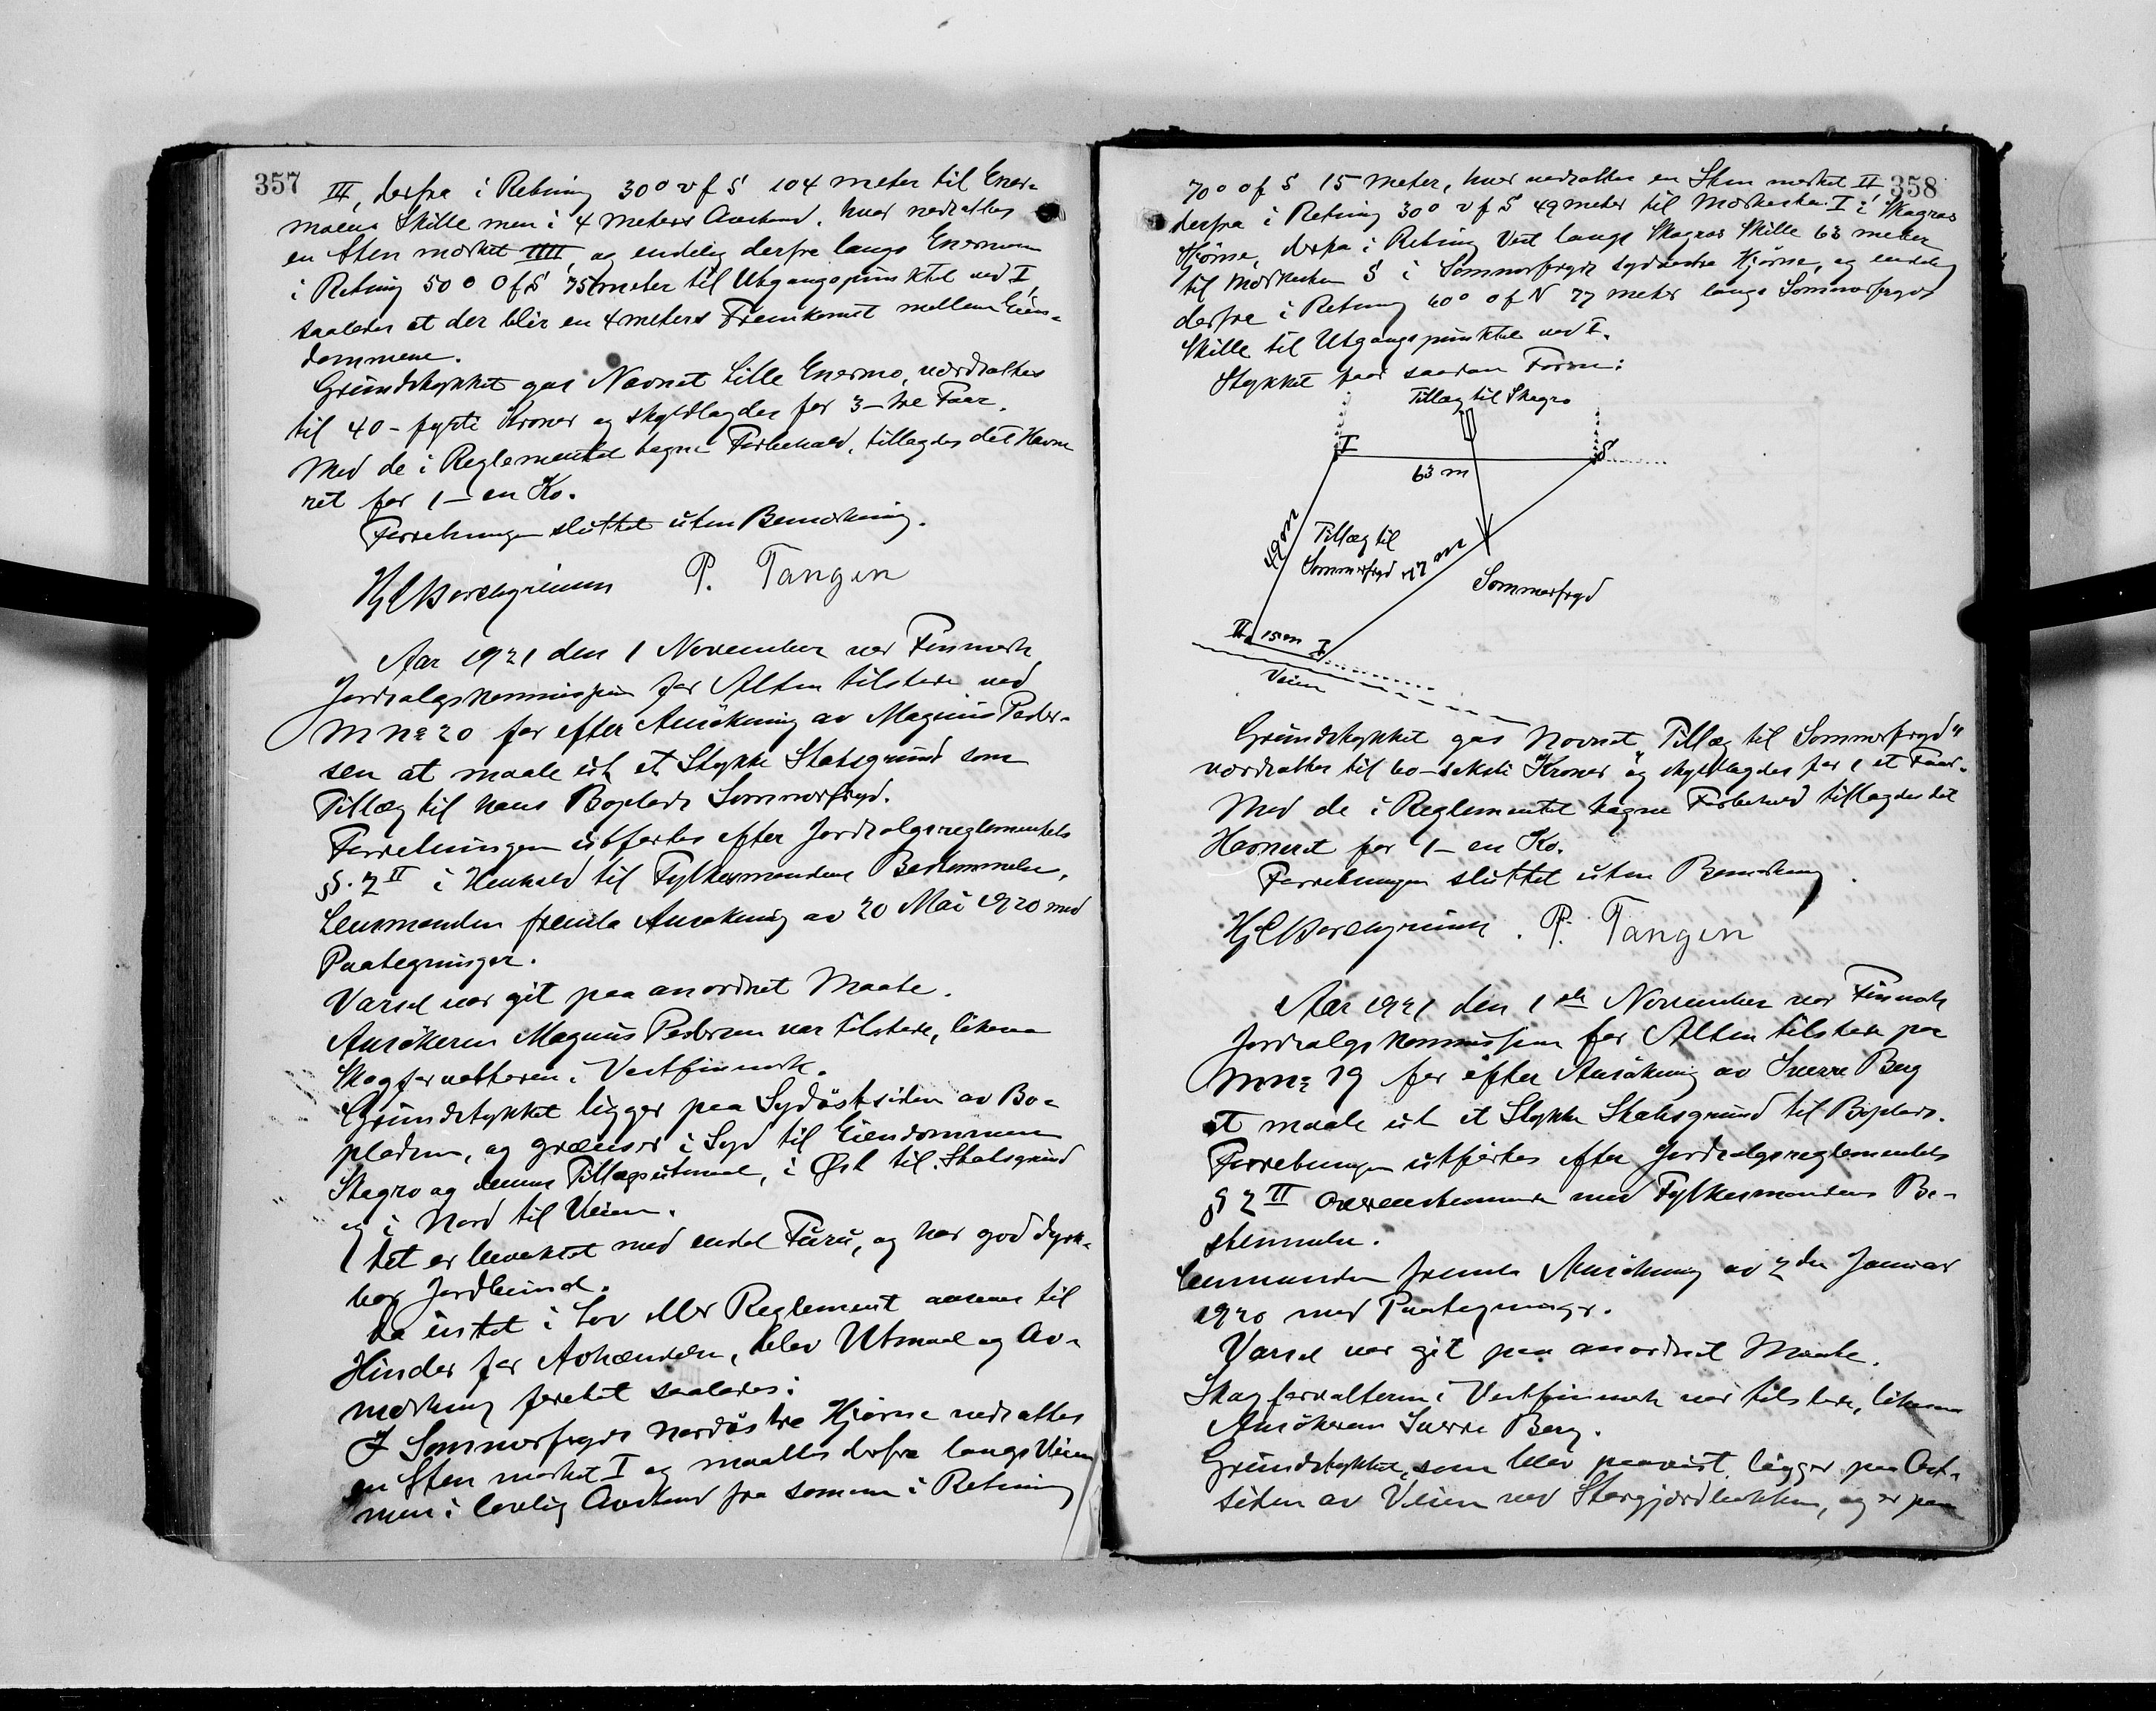 357
III, derfra i Retning 30° v f S 104 meter til Ener-
moens Skille men i 4 meters Avstand, hvor nedsattes
en Sten merket IIII, og endelig derfra langs Enermoen
i Retning 50° O f S 75 meter til Utgangspunktet ved I,
saaledes at der blir en 4 meters Fremkomst mellem Eien-
dommene.
Grundstykket gas Navnet Lille Enermo, værdsattes
til 40 - fyrti Kroner og skyldlagdes for 3 - tre Faar.
Med de i Reglementet tagne Forbehold, tillagdes det Havne
ret for 1 - en Ko.
Forretningen sluttet uten Bemerkning.
P. Tangen
Aar 1921 den 1 November var Finmark
Jordsalgskommission for Alten tilstede ved
M No 20 for efter Ansökning av Magnus Peder-
sen at maale ut et Stykke Statsgrund som
Tillæg til hans Boplads Sommerfryd.
Forretningen utførtes efter Jordsalgsreglementets
§. 2 II i Henhold til Fylkesmandens Bestemmelse.
Lensmanden fremla Ansøkning av 20 Mai 1920 med
Paategninger.
Varsel var git paa anordnet Maate.
Ansökeren Magnus Pedersen var tilstede, likesaa
Skogforvalteren i Vestfinmark.
Grundstykket ligger paa Sydöstsiden av Bo-
pladsen, og grænser i Syd til Eiendommen
Skagro og dennes Tillægsutmaal, i Øst til Statsgrund
og i Nord til Veien.
Det er bevokset med endel Furu, og har god dyrk-
bar Jordbund.
Da intet i Lov eller Reglement ansaaes til
Hinder for Avhændelse, blev Utmaal og Av-
merkning foretat saaledes:
I Sommerfryds nordöstre Hjørne nedsattes
en Sten merket I og maaltes derfra langs Veien
men i lovlig Avstand fra samme i Retning
358
70° o f S 15 meter, hvor nedsattes en Sten merket II,
derfra i Retning 30° v f S 49 meter til Merkesten I i Skagros
Hjørne, derfra i Retning Vest langs Skagros Skille 63 meter
til Merkesten S i Sommerfryds sydvestre Hjörne, og endelig
derfra i Retning 60° o f N 77 meter langs Sommerfryds
Skille til Utgangspunktet ved I.
Stykket faar saadan Form:
Tillæg til Skagro
I
S
63 m
49 m
Tillæg til
Sommerfryd
77 m
Sommerfryd
II 15 m I
Veien
Grundstykket gas Navnet "Tillæg til Sommerfryd"
værdsattes til 60 - seksti Kroner og skyldlagdes for 1 et Faar.
Med de i Reglementet tagne Forbehold tillagdes det
Havneret for 1 - en Ko.
Forretningen sluttet uten Bemerkning.
P. Tangen
Aar 1921 den 1ste November var Finmark
Jordsalgskommission for Alten tilstede paa
M No 19 for efter Ansökning av Sverre Berg
at maale ut et Stykke Statsgrund til Boplads.
Forretningen utførtes efter Jordsalgsreglementets
§ 2 II overenstemmende med Fylkesmandens Be-
stemmelse.
Lensmanden fremla Ansökning av 2den Januar
1920 med Paategninger.
Varsel var git paa anordnet Maate.
Skogforvalteren i Vestfinmark var tilstede, likesaa
Ansökeren Sverre Berg.
Grundstykket, som blev paavist, ligger paa Öst-
siden av Veien ved Storgjærdbakken, og er paa